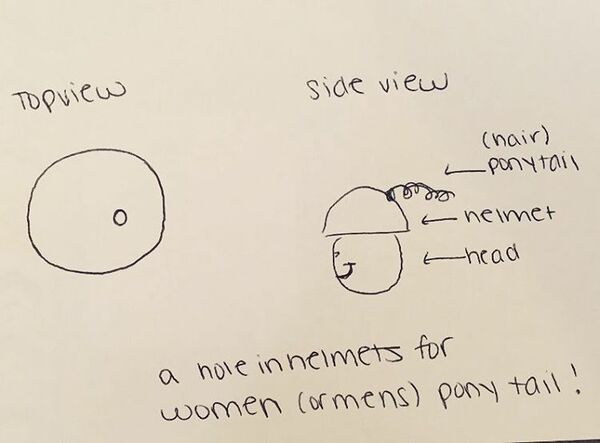 Topview
Side view
(hair)
ponytail
helmet
head
a hole in helmets for
women (or mens) pony tail!